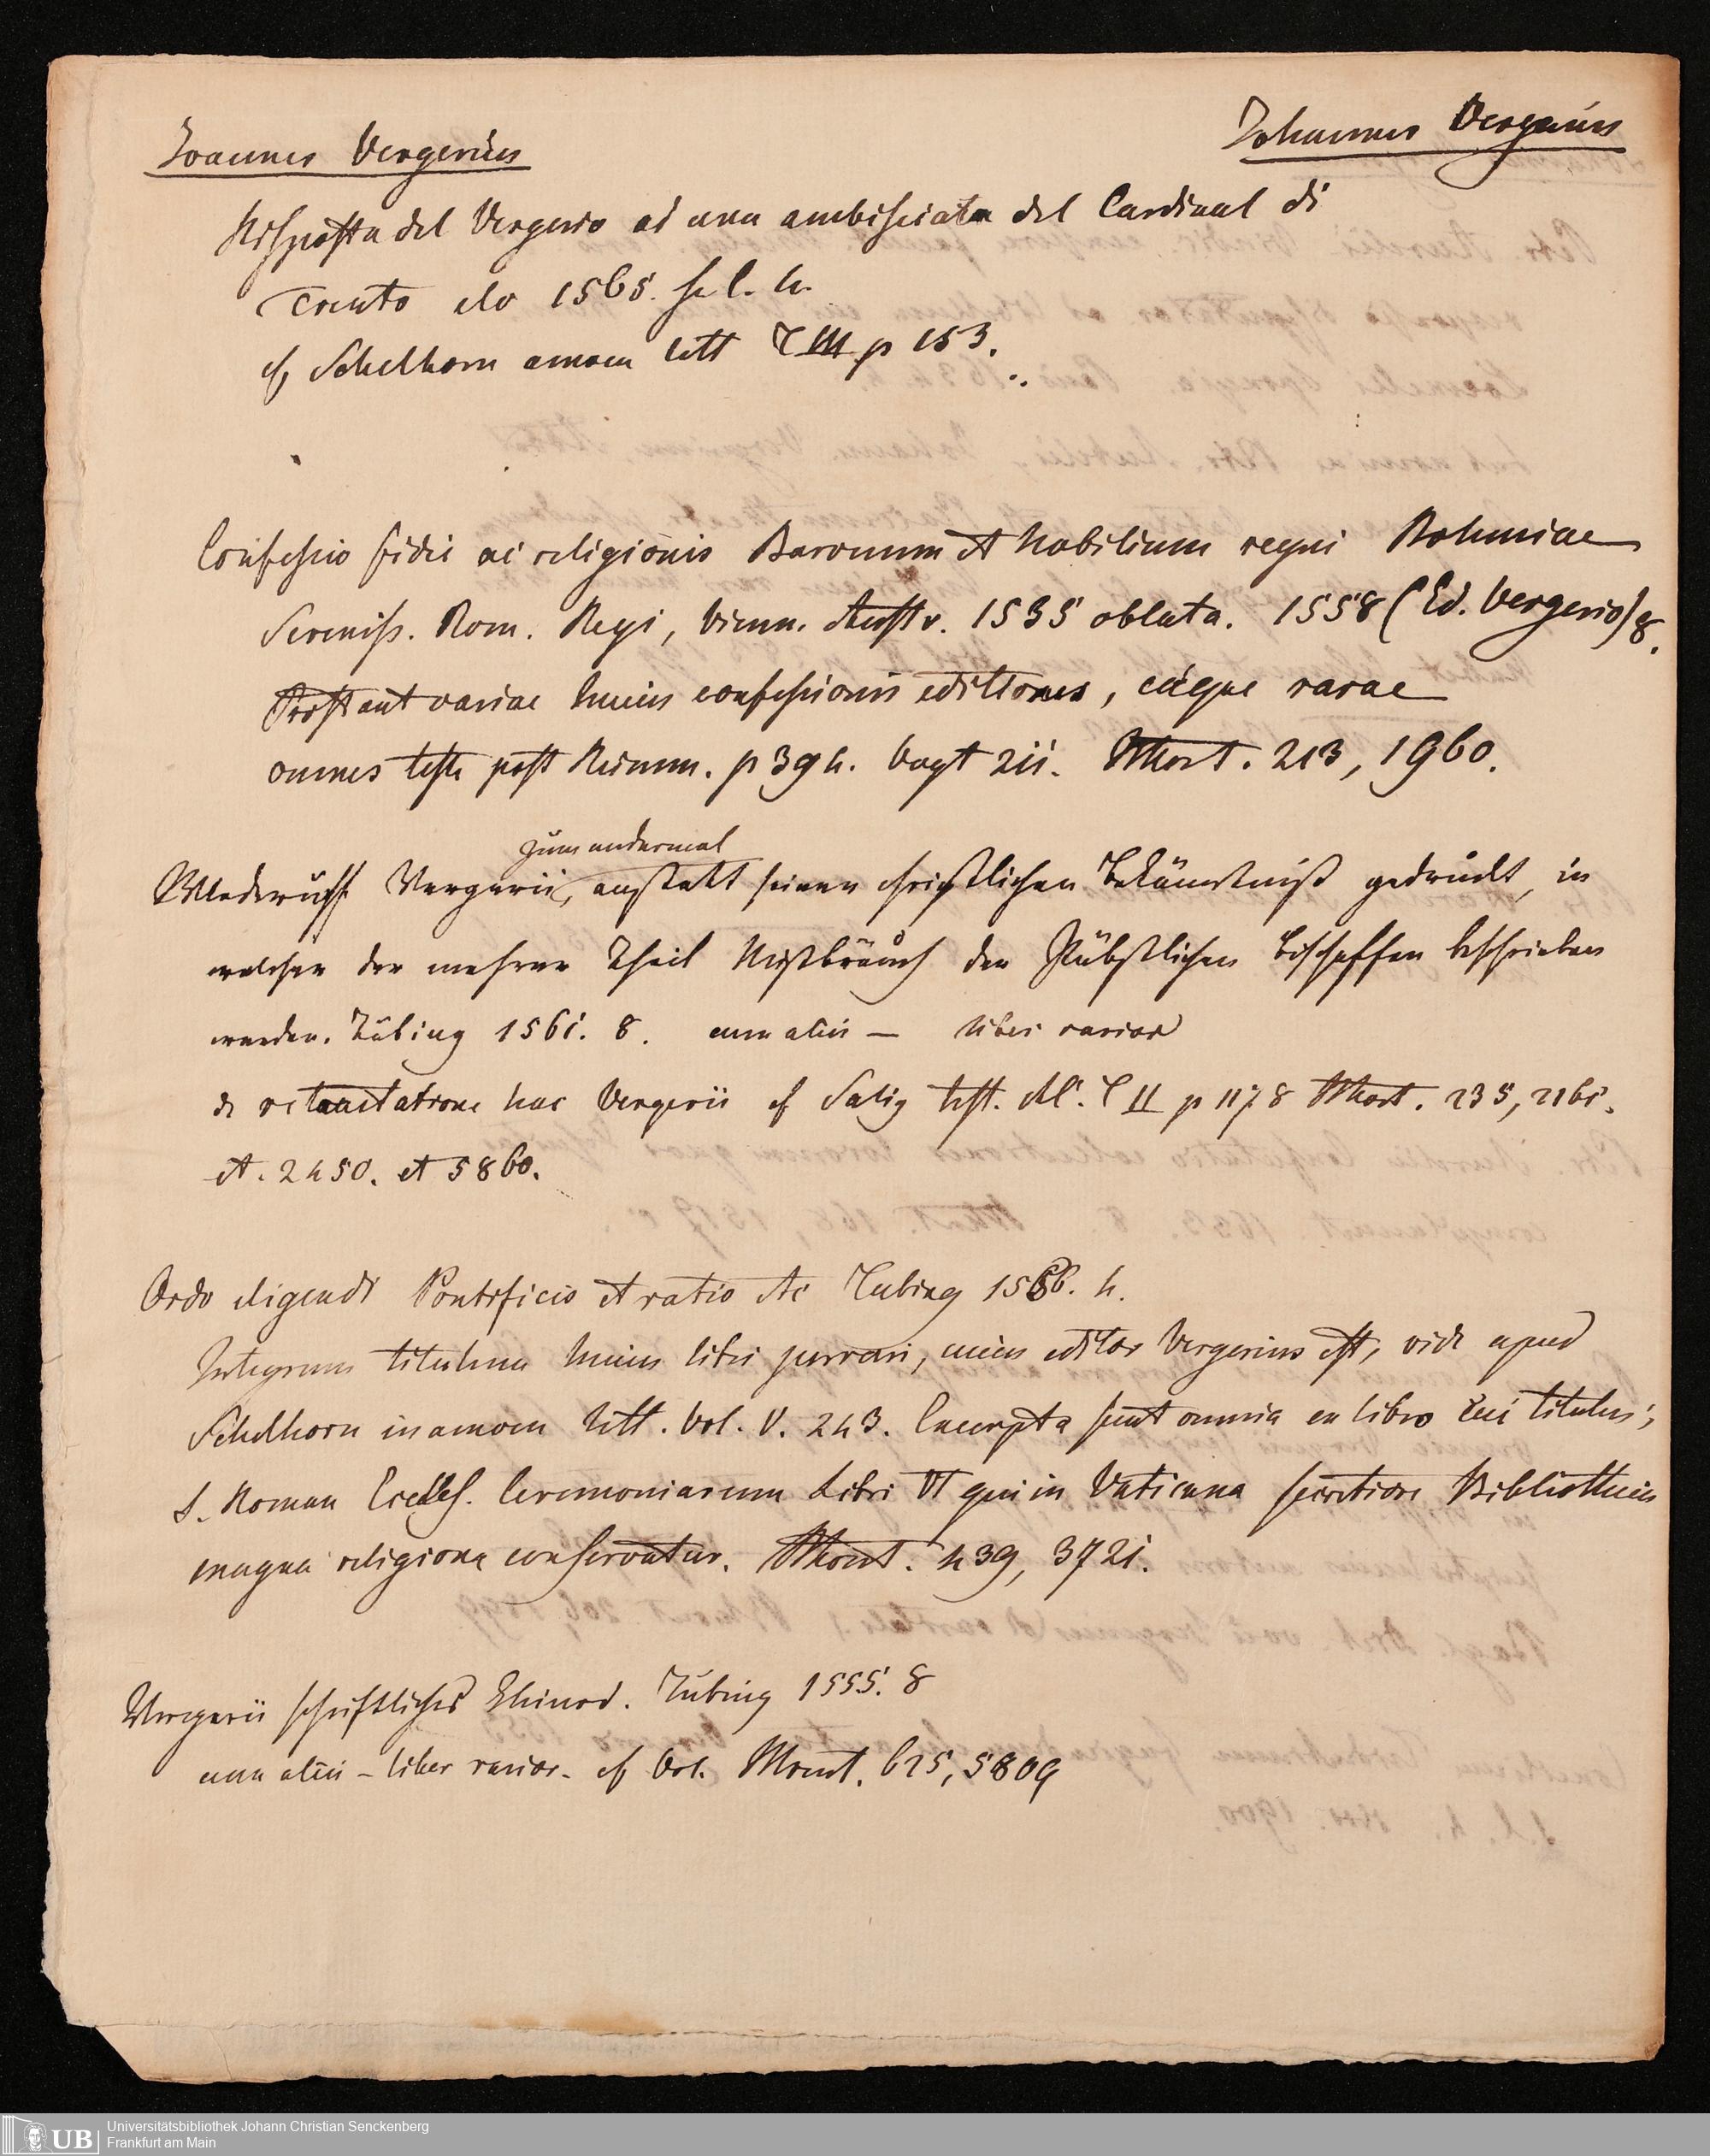 Joannes Vergerius
Johannes Vergerius
Risposta del Vergerio ad una ambisciata del Cardinal di
Trento do 1565. s. l. 4.
cf Schelhorn amoen litt T III p 153.
Confessio fidei ac religionis Baronum et Nobilium regni Bohmiae
Sereniss. Rom. Regi, Vienn. Austr. 1535 oblata. 1558 (Ed. Vergerio) 8.
Prostant variae huius confessionis editiones, eaeque rarae
omnes teste post Reimm. p 394. Vogt 211. 213, 1960.
zum andermal
Wiederruff Vergerii, anstatt seiner christlichen Bekäntniß gedruckt, in
welcher der mehrer Theil Mißbräuch der Päbstlichen Bischoffen beschrieben
werden. Tübing 1561. 8. cum aliis — liber rarior
de retractatione hac Vergerii cf Salig hist. A. C II p 1178 235, 2161.
et. 2450. et 5860.
Ordo eligendi Pontificis et ratio etc Tubing 1556. 4.
Integrum titulum huius libri perrari, cuius editor Vergerius est, vide apud
Schelhorn in amoen litt. Vol. V. 243. Excerpta sunt omnia ex libro cui titulus;
S. Roman Eccles. Ceremoniarum Libri VI qui in Vaticana secretiore Bibliothecis
magna religione conservatur. 439, 3721.
Vergerii schriftliches Tübing 1555. 8
cum aliis – liber rarior. cf Vol. 625, 5809
Universitätsbibliothek Johann Christian Senckenberg
Frankfurt am Main
UB